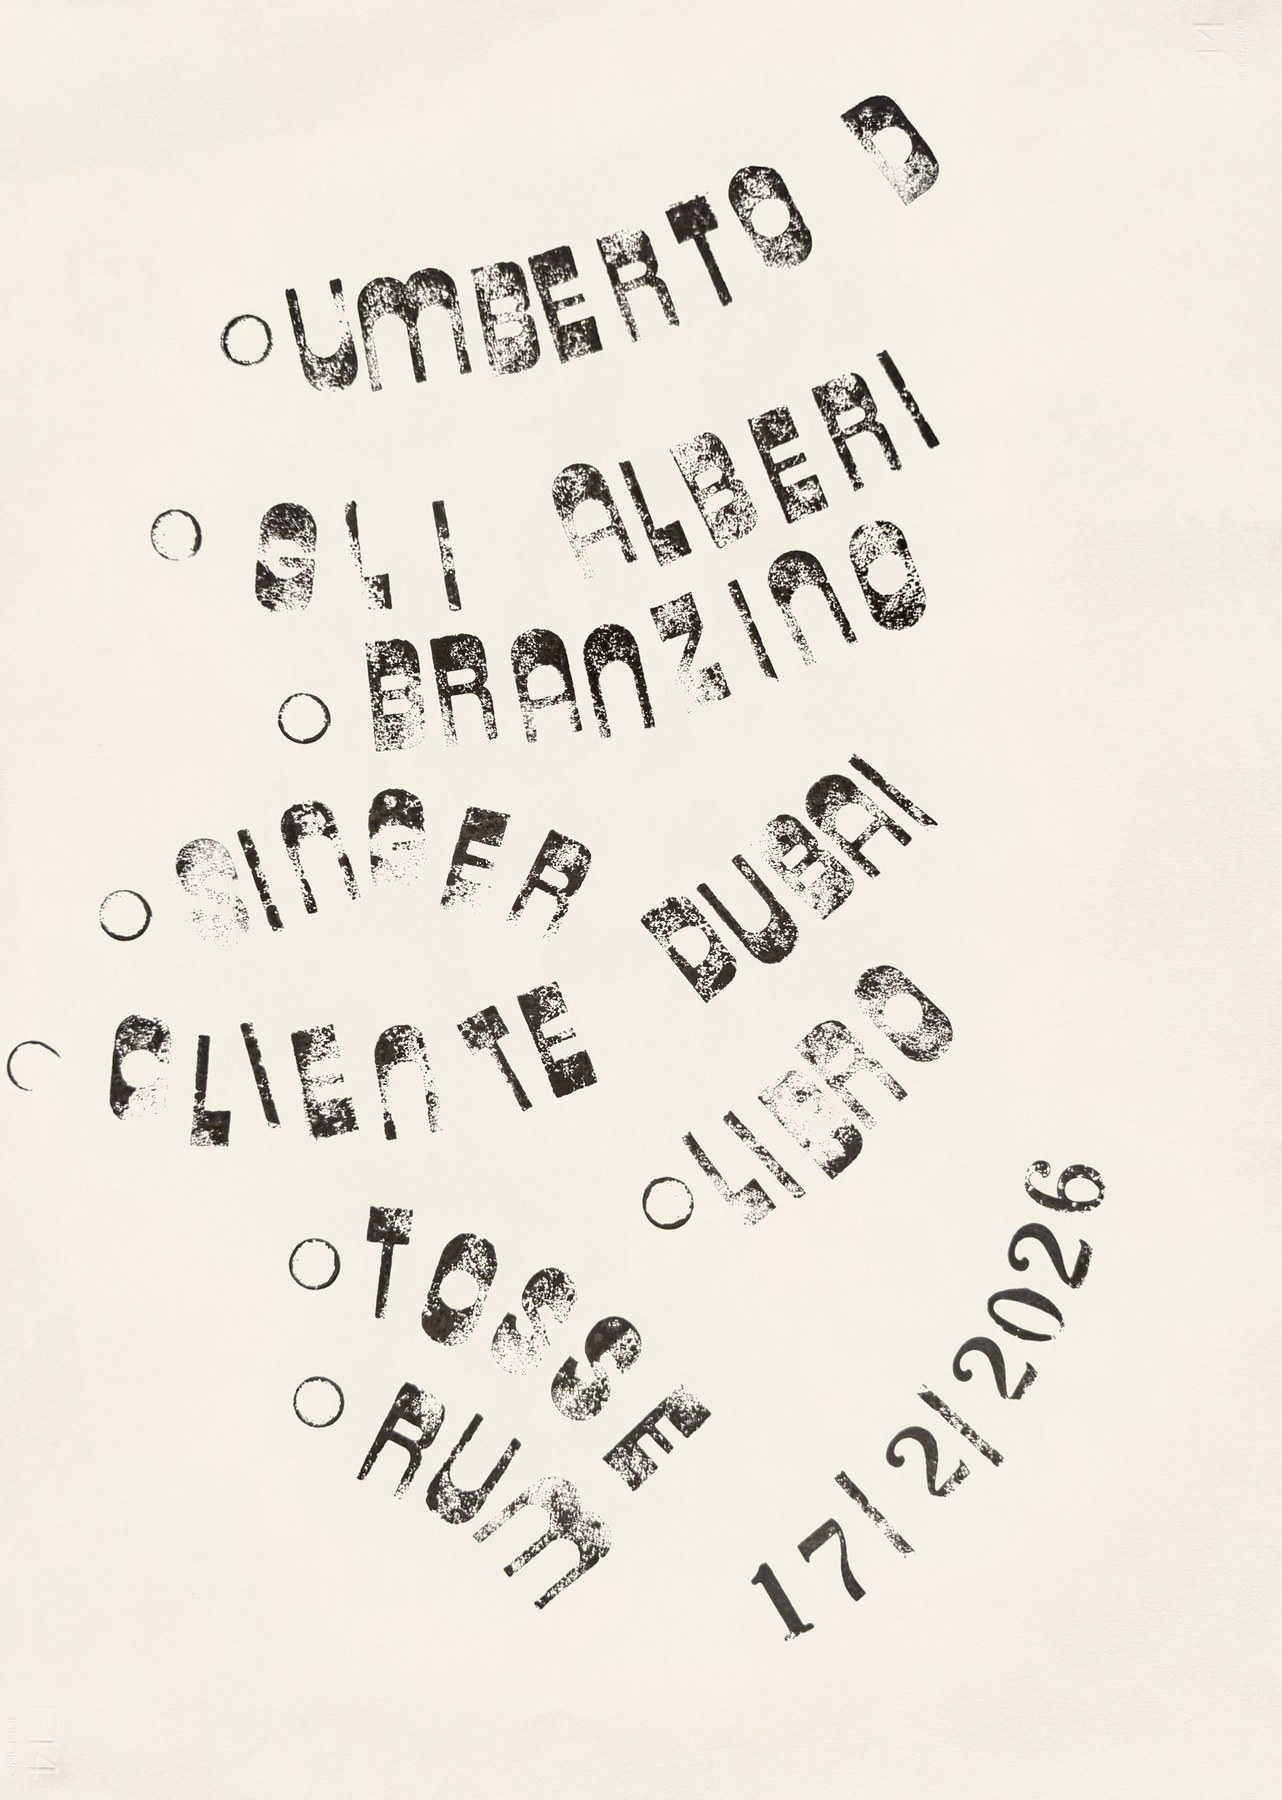 ○ UMBERTO D
○ GLI ALBERI
○ BRANZINO
○ SINGER
○ CLIENTE DUBAI
○ LIBRO
○ TOSSE
○ RUM
17/2/2026